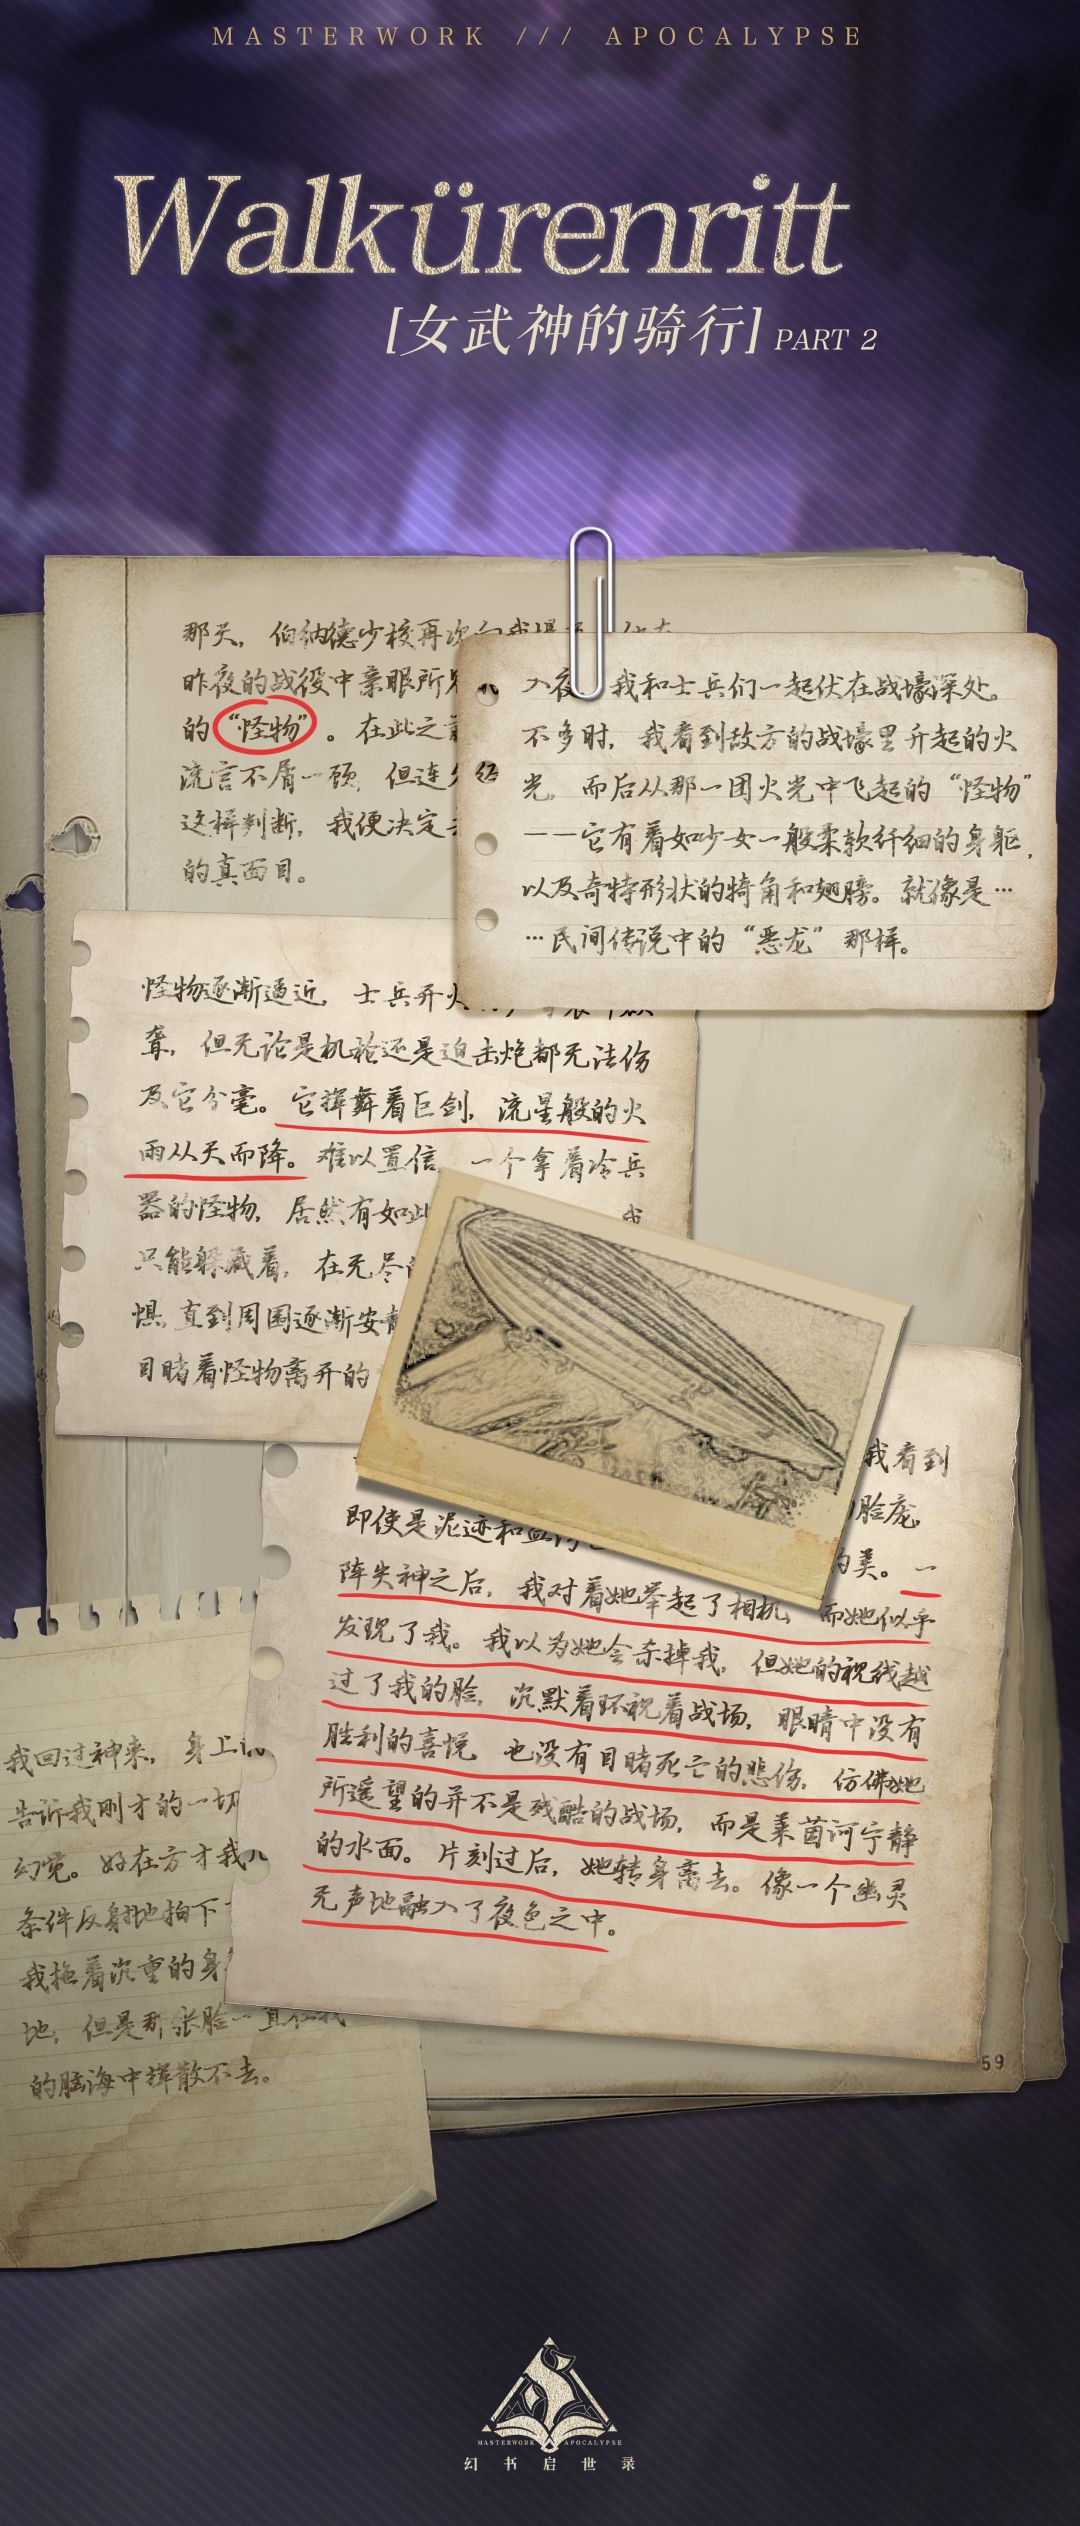 MASTERWORK /// APOCALYPSE
Walkürenritt
[女武神的骑行] PART 2
那天，伯纳德少校再次向我
昨夜的战役中亲眼所
的“怪物”。在此之
流言不屑一顾，但连
这样判断，我便决定
的真面目。
入夜 我和士兵们一起伏在战壕深处。
不多时，我看到敌方的战壕里升起的火
光，而后从那一团火光中飞起的“怪物”
——它有着如少女一般柔软纤细的身躯，
以及奇特形状的犄角和翅膀。就像是…
…民间传说中的“恶龙”那样。
怪物逐渐逼近，士兵开火
聋，但无论是机枪还是迫击炮都无法伤
及它分毫。它挥舞着巨剑，流星般的火
雨从天而降。难以置信，一个拿着冷兵
器的怪物，居然有如此 我
只能躲藏着，在无尽
惧，直到周围逐渐安静
目睹着怪物离开的
我看到
脸庞。
即使是泥迹和血
的美。一
阵失神之后，我对着她举起了相机，而她似乎
发现了我。我以为她会杀掉我，但她的视线越
过了我的脸，沉默着环视着战场，眼睛中没有
胜利的喜悦，也没有目睹死亡的悲伤，仿佛她
所遥望的并不是残酷的战场，而是莱茵河宁静
的水面。片刻过后，她转身离去。像一个幽灵
无声地融入了夜色之中。
我回过神来，身上
告诉我刚才的一切
幻觉。好在方才我
条件反射地拍下
我拖着沉重的身
地，但是那张脸一直在我
的脑海中挥散不去。
59
MASTERWORK APOCALYPSE
幻书启世录